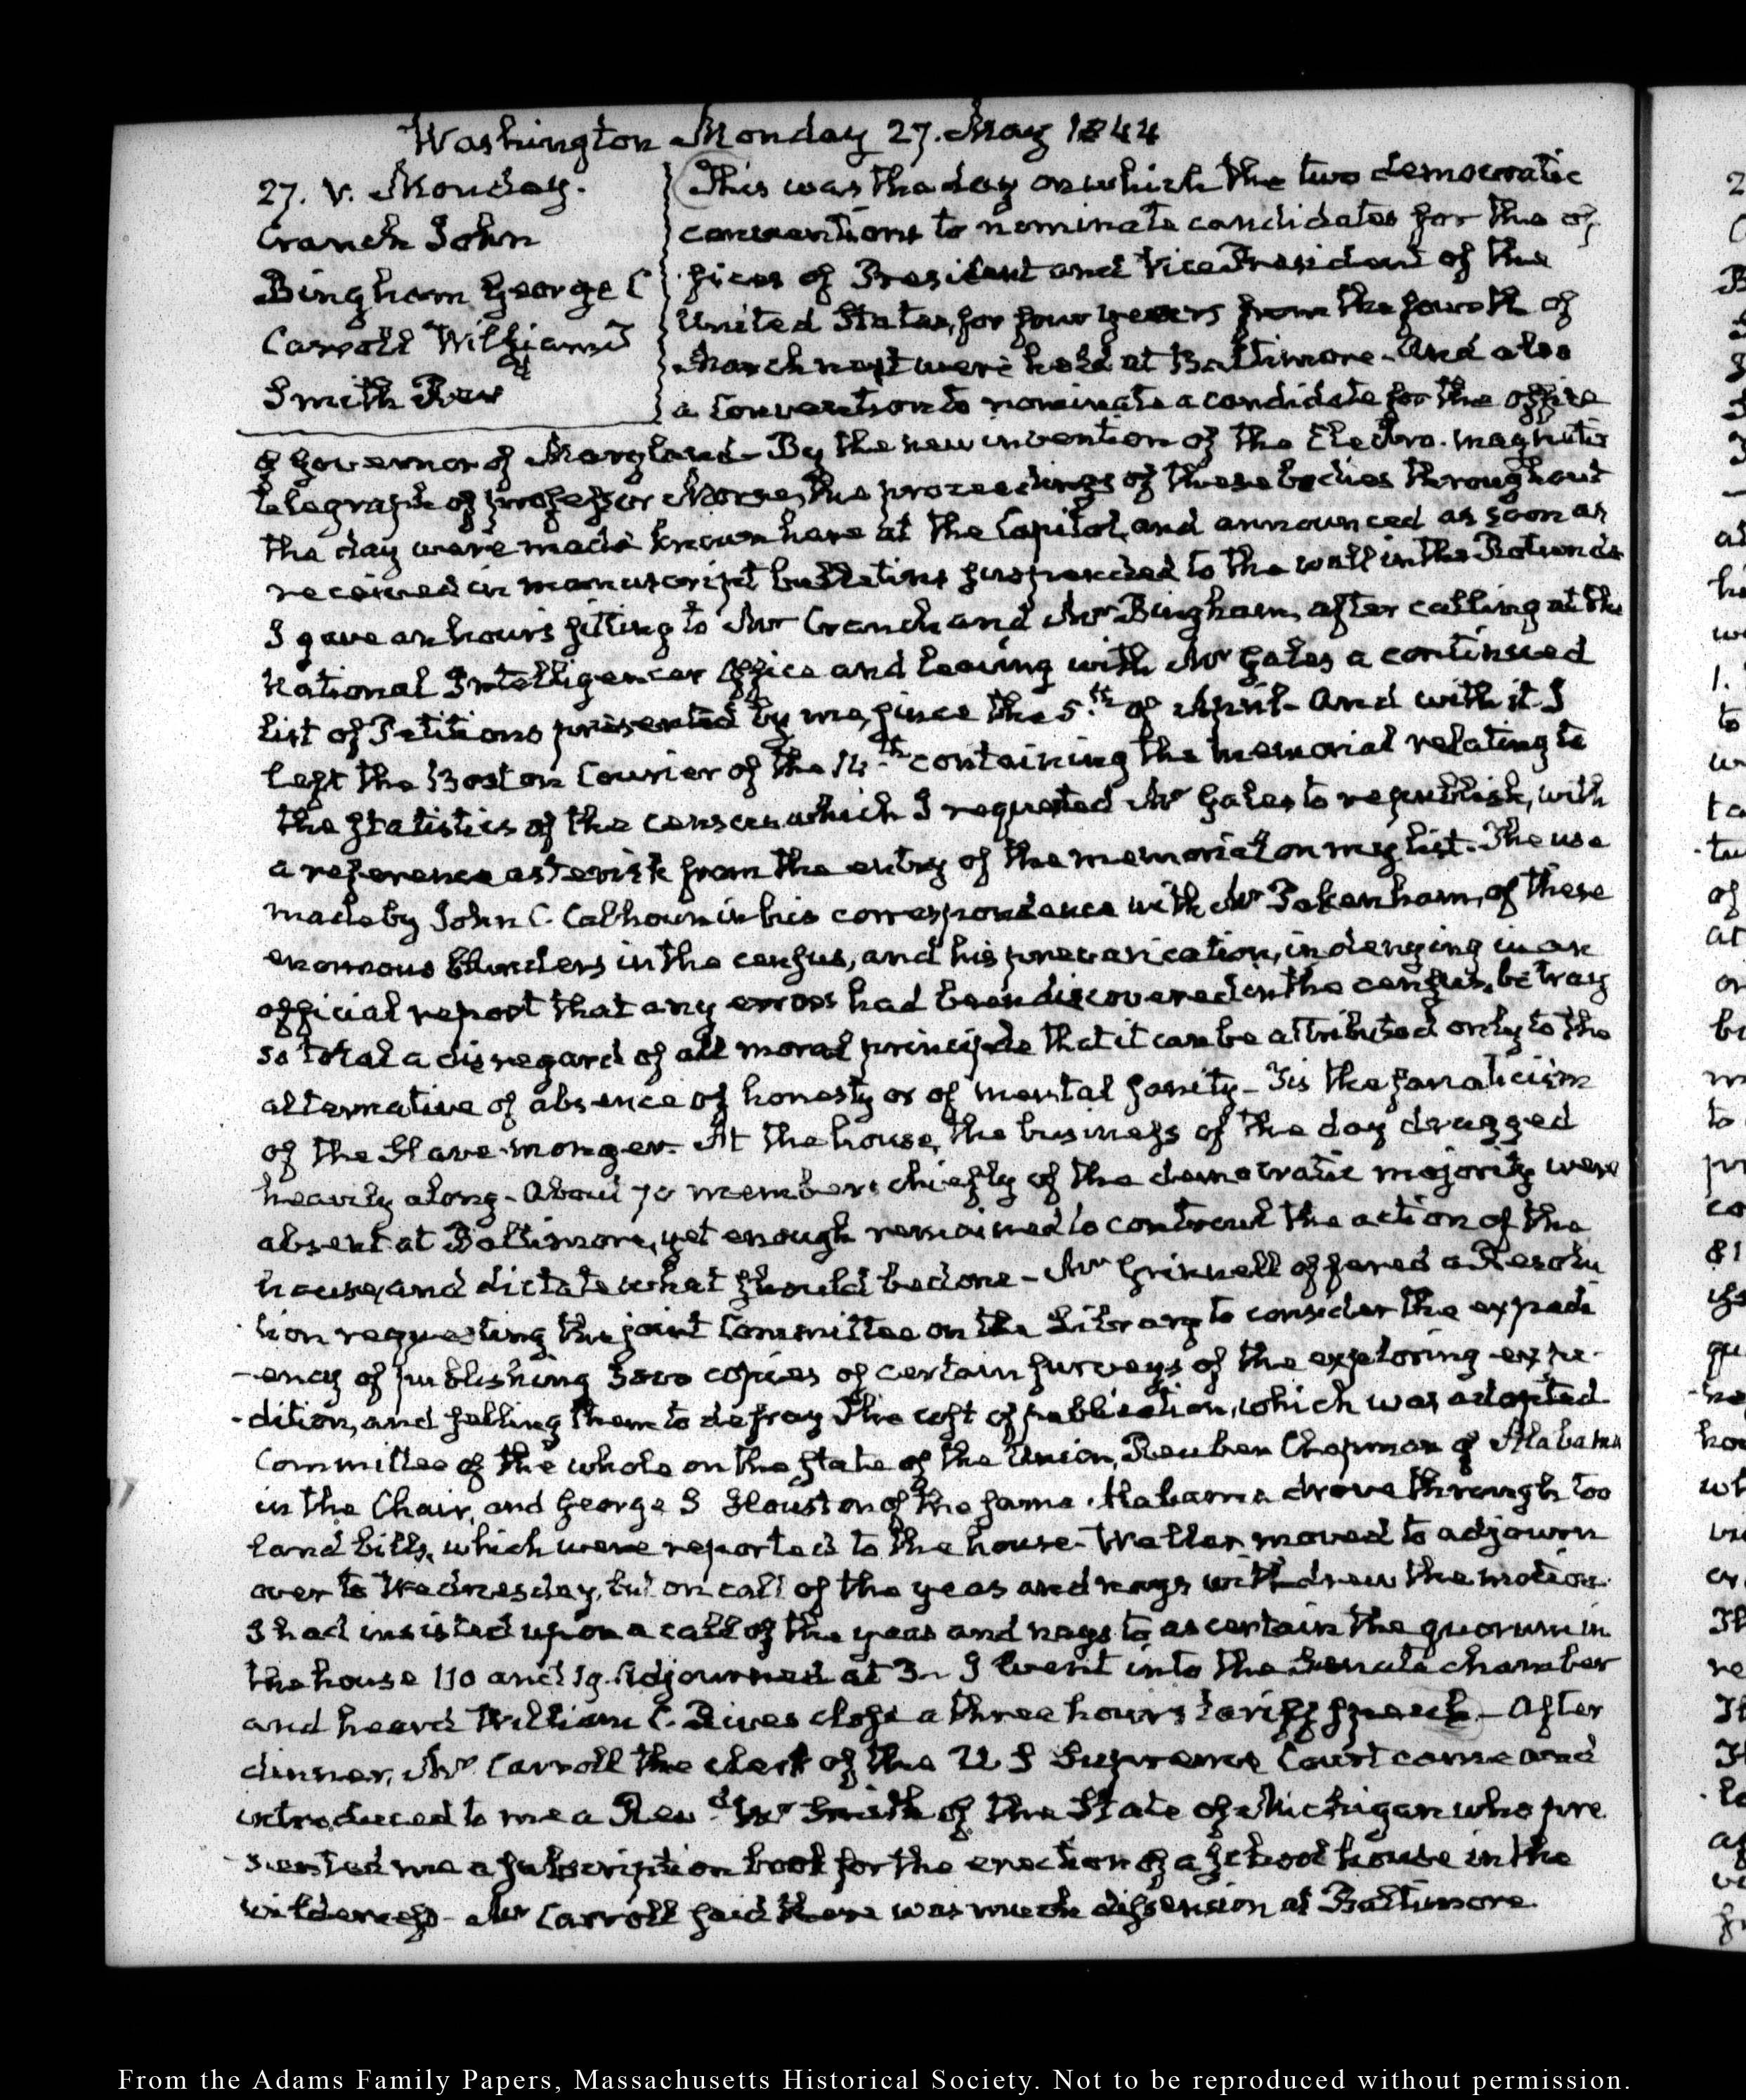 Washington Monday 27. May 1844
27. V. Monday.
Cranch John
Bingham George C
Carroll William T
Smith Revd
This was the day on which the two democratic
conventions to nominate candidates for the of
fices of President and Vice President of the
United States, for four years from the fourth of
March next were held at Baltimore. And also
a Convention to nominate a candidate for the office
of Governor of Maryland- By the new invention of the Electro-magnetic
telegraph of professor Morse, the proceedings of these bodies throughout
the day were made known here at the Capitol, and announced as soon as
received in manuscript bulletins suspended to the wall in the Rotunda
I gave an hour's sitting to Mr Cranch and Mr Bingham, after calling at the
National Intelligencer Office and leaving with Mr Gales a continued
list of Petitions presented by me, since the 5.th of April- And with it I
left the Boston Courier of the 14.th containing the memorial relating to
the statistics of the census which I requested Mr Gales to republish, with
a reference asterisk from the entry of the memorial on my list. The use
made by John C. Calhoun in his correspondence with Mr Pakenham, of these
enormous blunders in the census, and his prevarication, in denying in an
official report that any errors had been discovered in the census, betray
so total a disregard of all moral principle that it can be attributed only to the
alternative of absence of honesty or of mental sanity- Tis the fanaticism
of the Slave-monger. At the house, the business of the day dragged
heavily along- About 70 members chiefly of the democratic majority were
absent at Baltimore, yet enough remained to controul the action of the
house, and dictate what should be done- Mr Grinnell offered a Resolu
tion requesting the joint Committee on the Library to consider the expedi
-ency of publishing copies of certain surveys of the exploring expe-
-dition, and selling them to defray the cost of publication, which was adopted.
Committee of the whole on the state of the Union, Reuben Chapman of Alabama
in the Chair, and George S Houston of the same Alabama drove through too
land bills, which were reported to the house- Weller moved to adjourn
over to Wednesday, but on call of the yeas and nays withdrew the motion.
I had insisted upon a call of the yeas and nays to ascertain the quorum in
the house 110 and 19. Adjourned at 3- I went into the Senate chamber
and heard William C. Rives close a three hours tariff speech- After
dinner, Mr Carroll the clerk of the U S Supreme Court came and
introduced to me a Revd Mr Smith of the State of Michigan who pre
-sented me a subscription book for the erection of a school house in the
wilderness- Mr Carroll said there was much dissension at Baltimore.
From the Adams Family Papers, Massachusetts Historical Society. Not to be reproduced without permission.